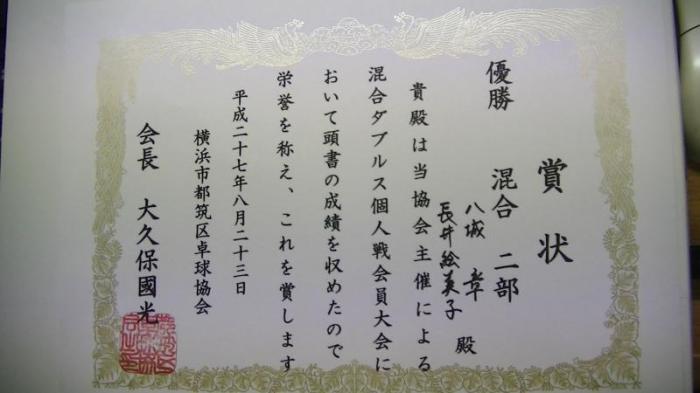 賞状
優勝 混合 二部
八城 章
長井絵美子 殿
貴殿は当協会主催による
混合ダブルス個人戦会員大会に
おいて頭書の成績を収めたので
栄誉を称え、これを賞します
平成二十七年八月二十三日
横浜市都筑区卓球協会
会長 大久保國光